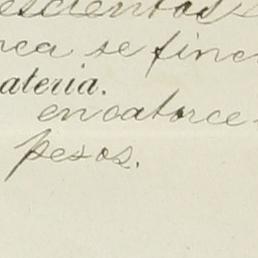 escientos
rea se finc
ateria.
en catorce
pesos.